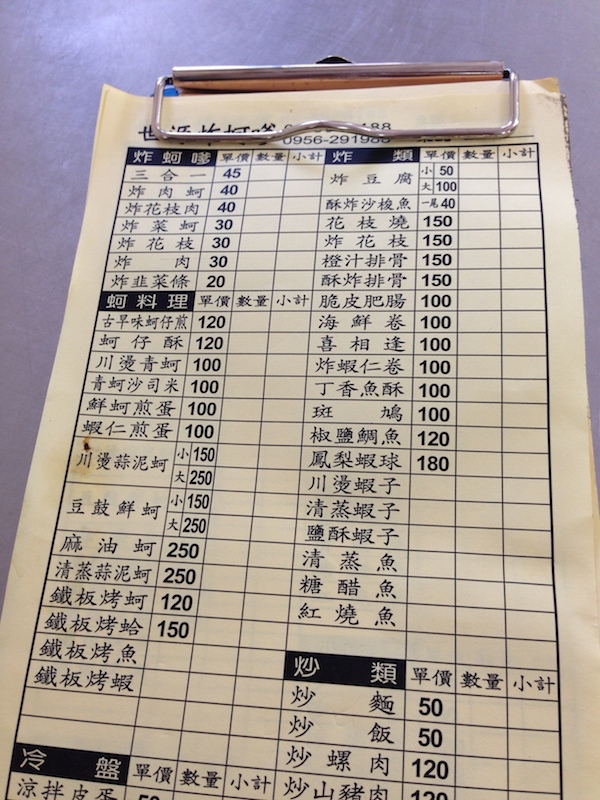 世源炸蚵嗲
0956-291988
炸蚵嗲 單價 數量 小計
三合一 45
炸肉蚵 40
炸花枝肉 40
炸菜蚵 30
炸花枝 30
炸肉 30
炸韭菜條 20
蚵料理 單價 數量 小計
古早味蚵仔煎 120
蚵仔酥 120
川燙青蚵 100
青蚵沙司米 100
鮮蚵煎蛋 100
蝦仁煎蛋 100
川燙蒜泥蚵 小150
大250
豆鼓鮮蚵 小150
大250
麻油蚵 250
清蒸蒜泥蚵 250
鐵板烤蚵 120
鐵板烤蛤 150
鐵板烤魚
鐵板烤蝦
冷盤 單價 數量 小計
涼拌皮蛋
炸類 單價 數量 小計
炸豆腐 小50
大100
酥炸沙梭魚 一尾40
花枝燒 150
炸花枝 150
橙汁排骨 150
酥炸排骨 150
脆皮肥腸 100
海鮮卷 100
喜相逢 100
炸蝦仁卷 100
丁香魚酥 100
斑鳩 100
椒鹽鯛魚 120
鳳梨蝦球 180
川燙蝦子
清蒸蝦子
鹽酥蝦子
清蒸魚
糖醋魚
紅燒魚
炒類 單價 數量 小計
炒麵 50
炒飯 50
炒螺肉 120
炒山豬肉 120